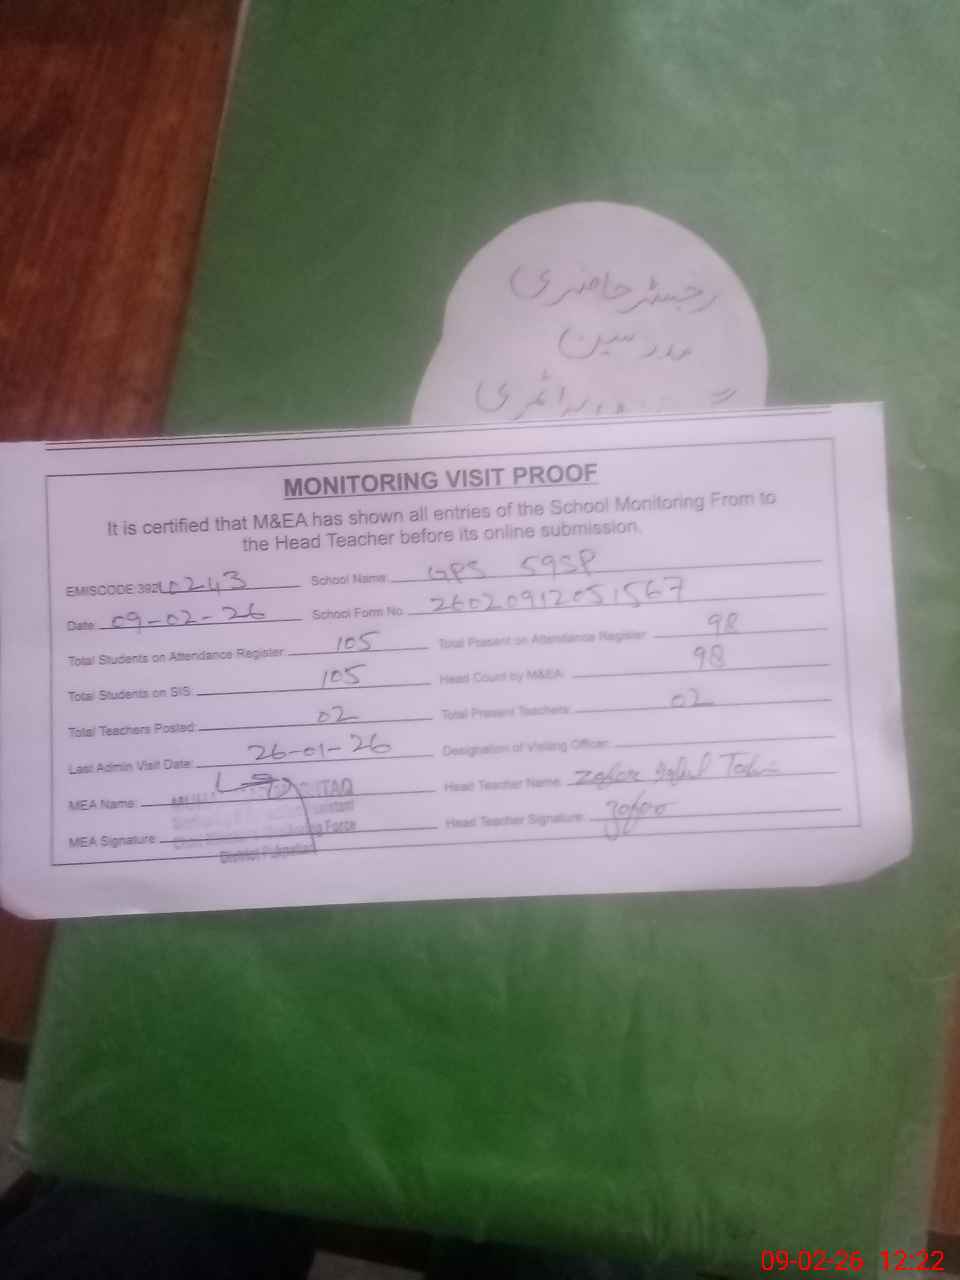 رجسٹر حاضری
مدرسین
پرائمری
MONITORING VISIT PROOF
It is certified that M&EA has shown all entries of the School Monitoring From to
the Head Teacher before its online submission.
EMISCODE:39210243 School Name: GPS 59SP
Date: 09-02-26 School Form No: 26020912051567
Total Students on Attendance Register: 105 Total Present on Attendance Register: 98
Total Students on SIS: 105 Head Count by M&EA: 98
Total Teachers Posted: 02 Total Present Teachers: 02
Last Admin Visit Date: 26-01-26 Designation of Visiting Officer:
MEA Name: Head Teacher Name: Zafar Iqbal
MEA Signature: Force Head Teacher Signature: Zafar
District Pakpattan
09-02-26 12:22